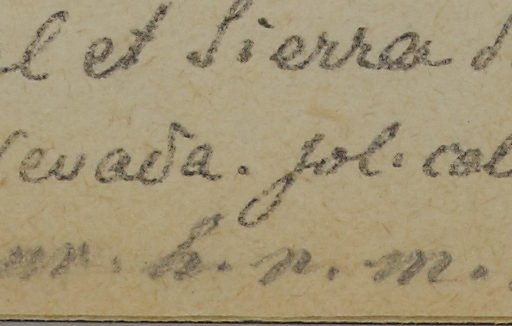 l et Sierra
Nevada. jol. col
nr. h. n. m.